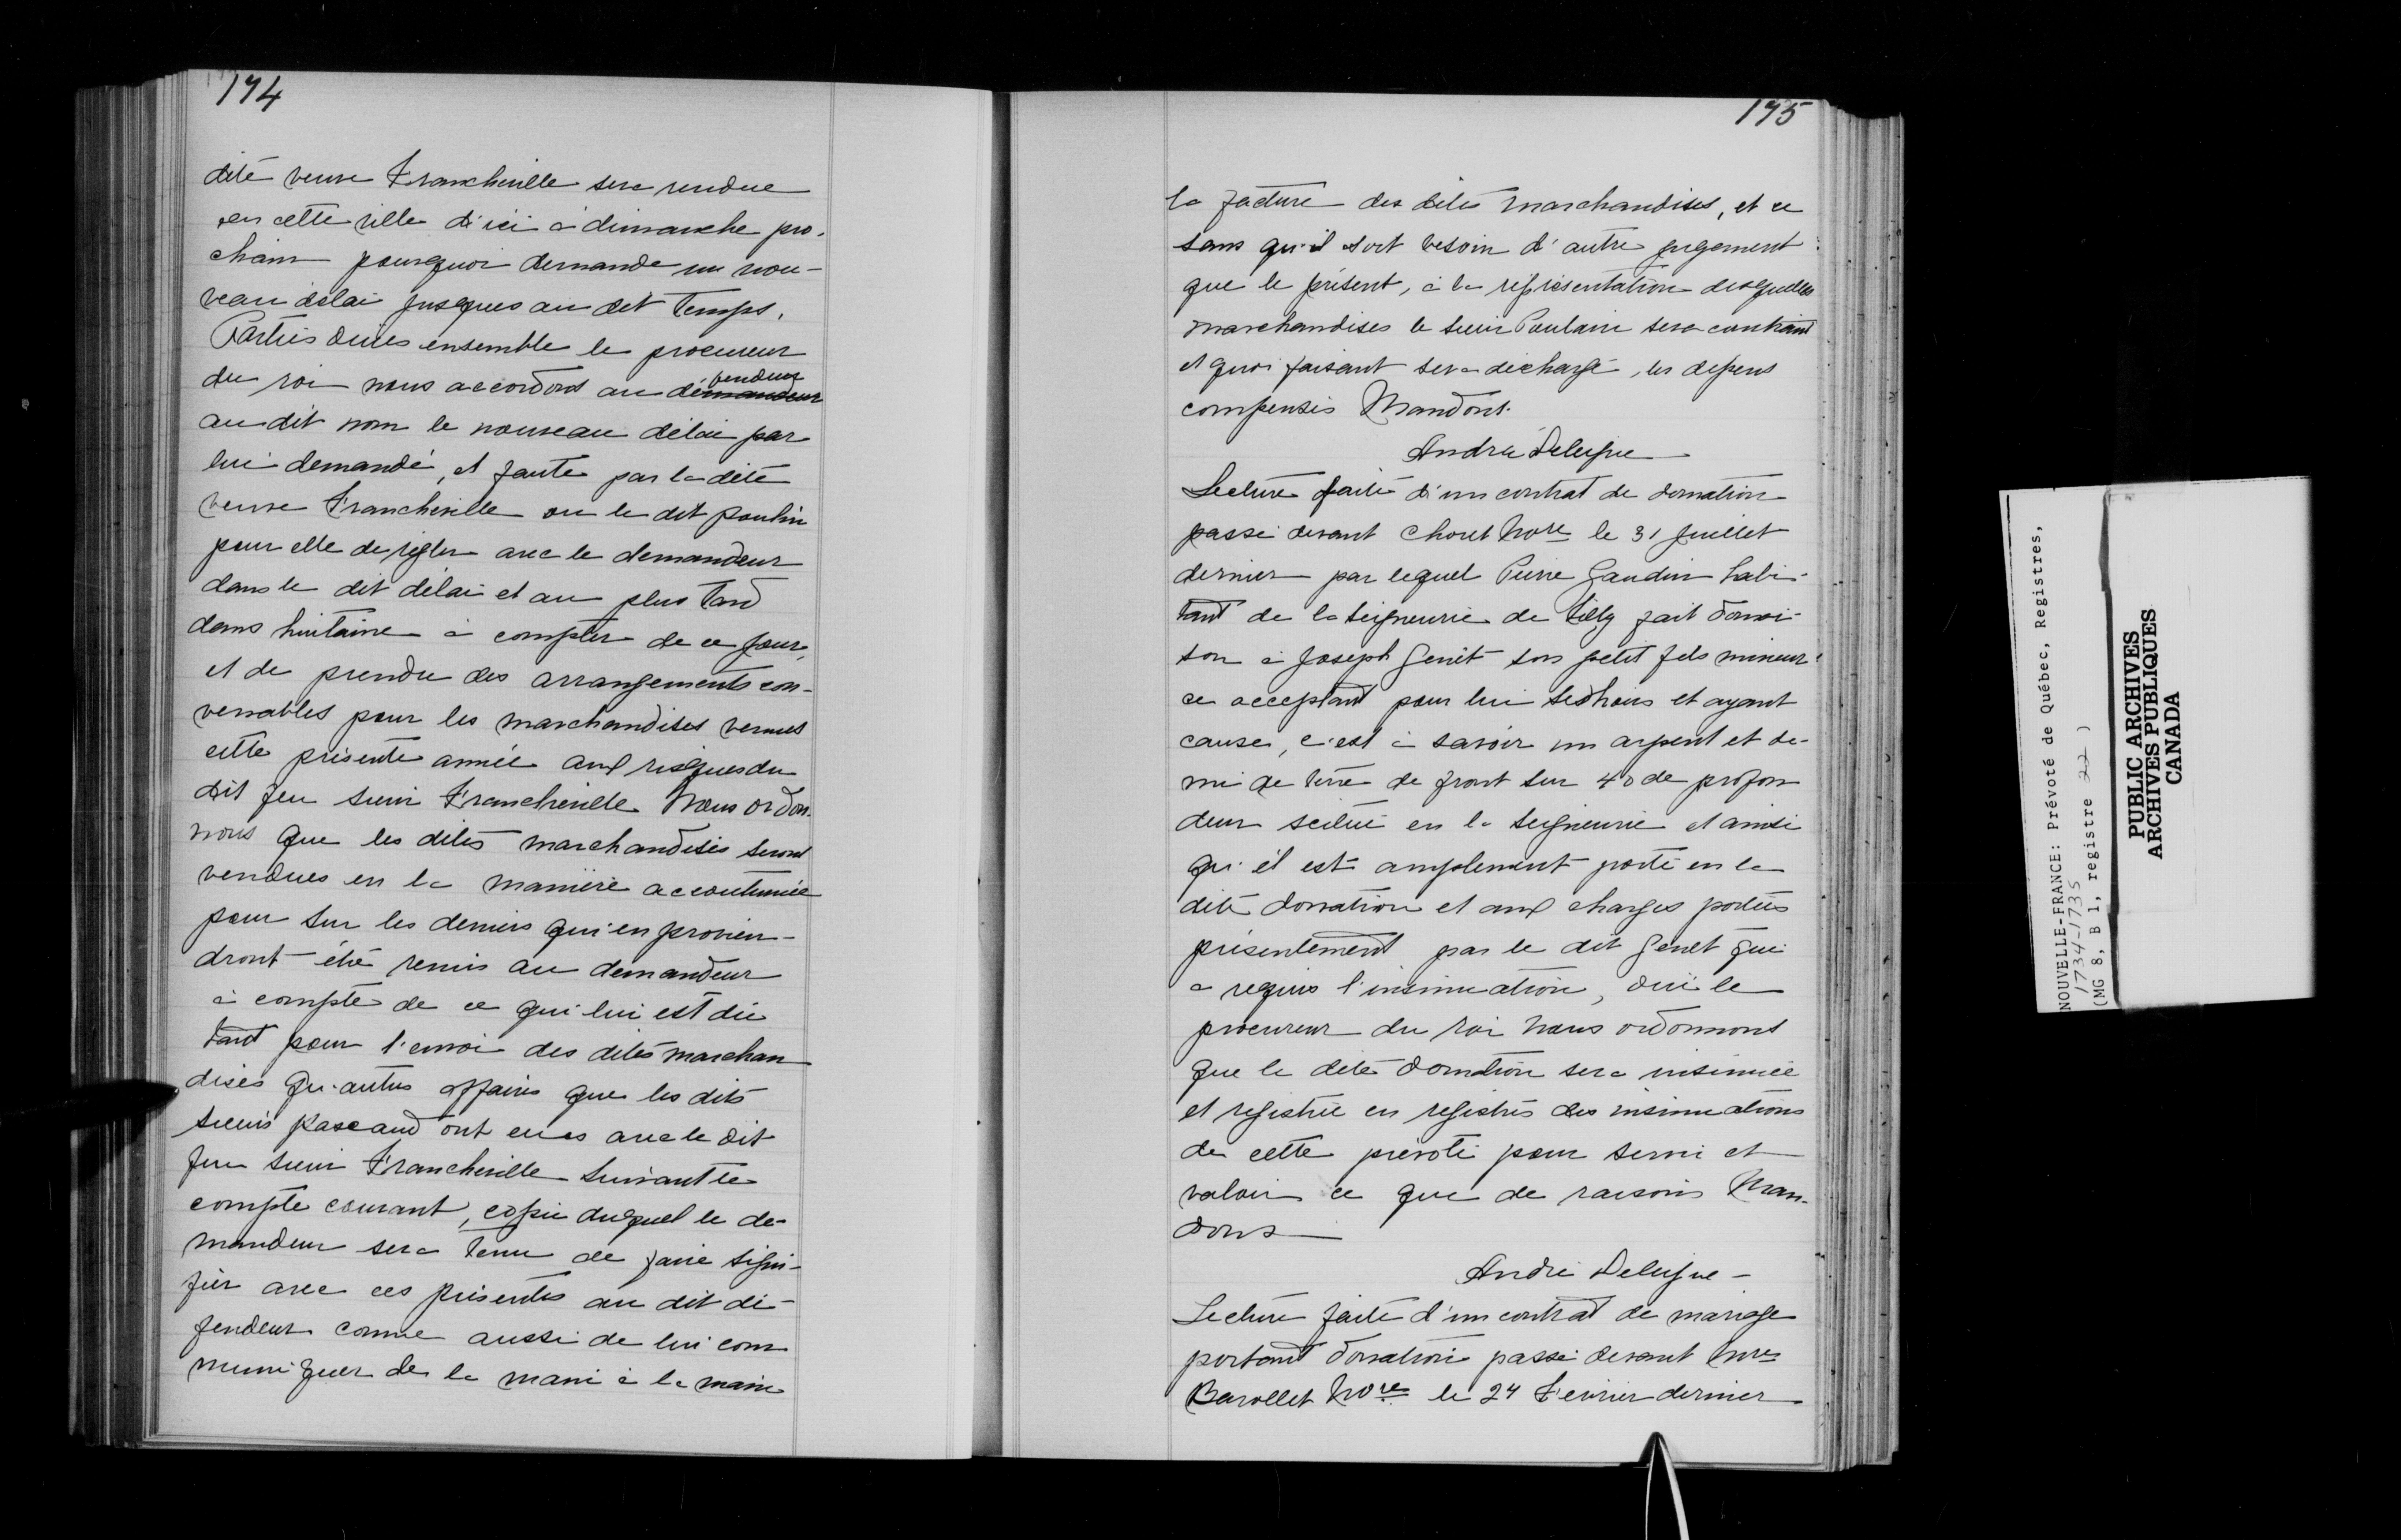 174
dite veuve Francheville sera rendue
en cette ville d'ici à dimanche pro-
chain pourquoi demande un nou-
veau délai jusques au dit temps.
Parties ouies ensemble le procureur
du roi nous accordons au demandeur fendeur
au dit nom le nouveau délai par
lui demandé, et faute par la dite
veuve Francheville ou le dit poulin
pour elle de régler avec le demandeur
dans le dit délai et au plus tard
dans huitaine à compter de ce jour,
et de prendre des arrangements con-
venables pour les marchandises venues
cette présente année aux risques du
dit feu sieur Francheville Nous ordon-
nons que les dites marchandises seront
vendues en la manière accoutumée
pour sur les deniers qui en provien-
dront être remis au demandeur
à compte de ce qui lui est dû
tant pour l'envoi des dites marchan
dises qu'autres affaires que les dits
sieurs Pascaud ont eues avec le dit
feu sieur Francheville suivant le
compte courant, copie duquel le de-
mandeur sera tenu de faire signi-
fier avec ces présentes au dit dé-
fendeur comme aussi de lui com
muniquer de la main à la main
175
la facture des dites marchandises, et ce
sans qu'il soit besoin d'autre jugement
que le présent, à la représentation desquelles
marchandises le sieur Poulain sera contraint
et quoi faisant sera déchargé, les depens
compensés Mandons.
André Deleigne
Lecture faite d'un contrat de donation
passé devant Choret Nore le 31 juillet
dernier par lequel Pierre Gaudin habi-
tant de la seigneurie de Tilly fait donai-
son à Joseph Genêt son petit fils mineur
ce acceptant pour lui ses hoirs et ayant
cause, c'est à savoir un arpent et de-
mi de terre de front sur 40 de profon
deur scitué en la seigneurie et ainsi
qu'il est amplement porté en la
dite donation et aux charges portées
présentement par le dit Genet qui
a requis l'insinuation, oui le
procureur du roi Nous ordonnons
que la dite donation sera insinuée
et registrée es registres des insinuations
de cette prévoté pour servir et
valoir ce que de raisons Man-
dons
André Deleigne
Lecture faite d'un contrat de mariage
portant donation passé devant Mre
Barollet Nore le 24 Fevrier dernier
NOUVELLE-FRANCE: Prévoté de Québec, Registres,
1734-1735
(MG 8, B 1, registre 22 )
PUBLIC ARCHIVES
ARCHIVES PUBLIQUES
CANADA